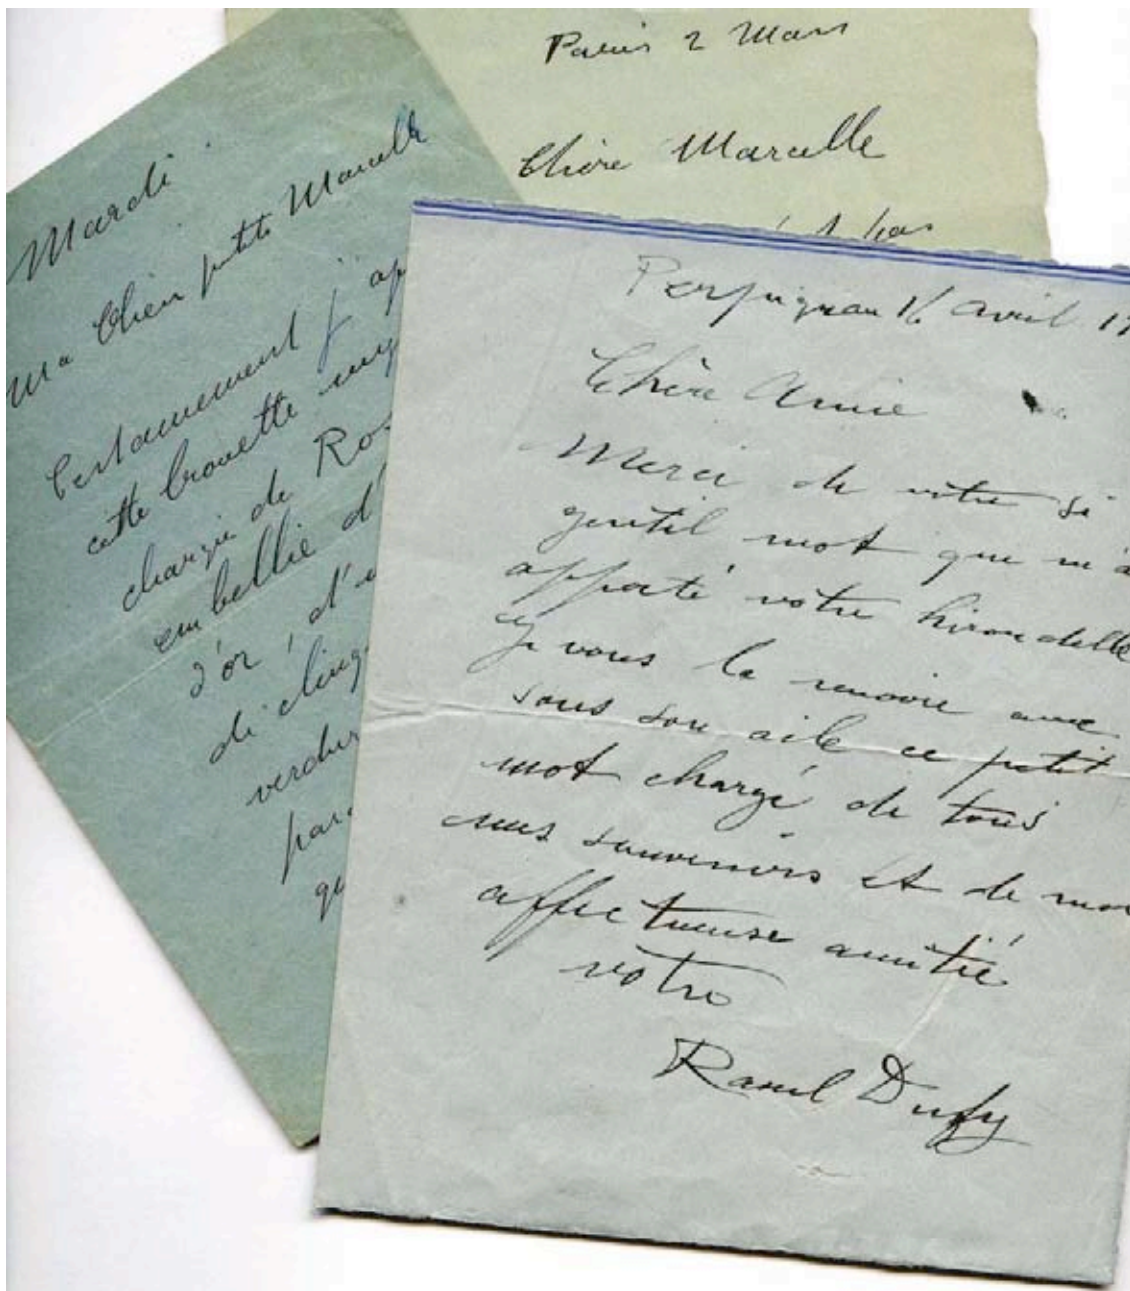 Paris 2 Mars
Chère Marcelle
pas
Mardi
Ma Chère petite Marcelle
Certainement j'
cette brouette
chargée de Ros
embellie d
d'or, d'
de
verdur
par
Perpignan 16 avril 19
Chère Amie
Merci de votre si
gentil mot que m'a
apporté votre hirondelle
je vous la renvoie avec
sous son aile ce petit
mot chargé de tous
mes souvenirs et de mon
affectueuse amitié
votre
Raoul Dufy